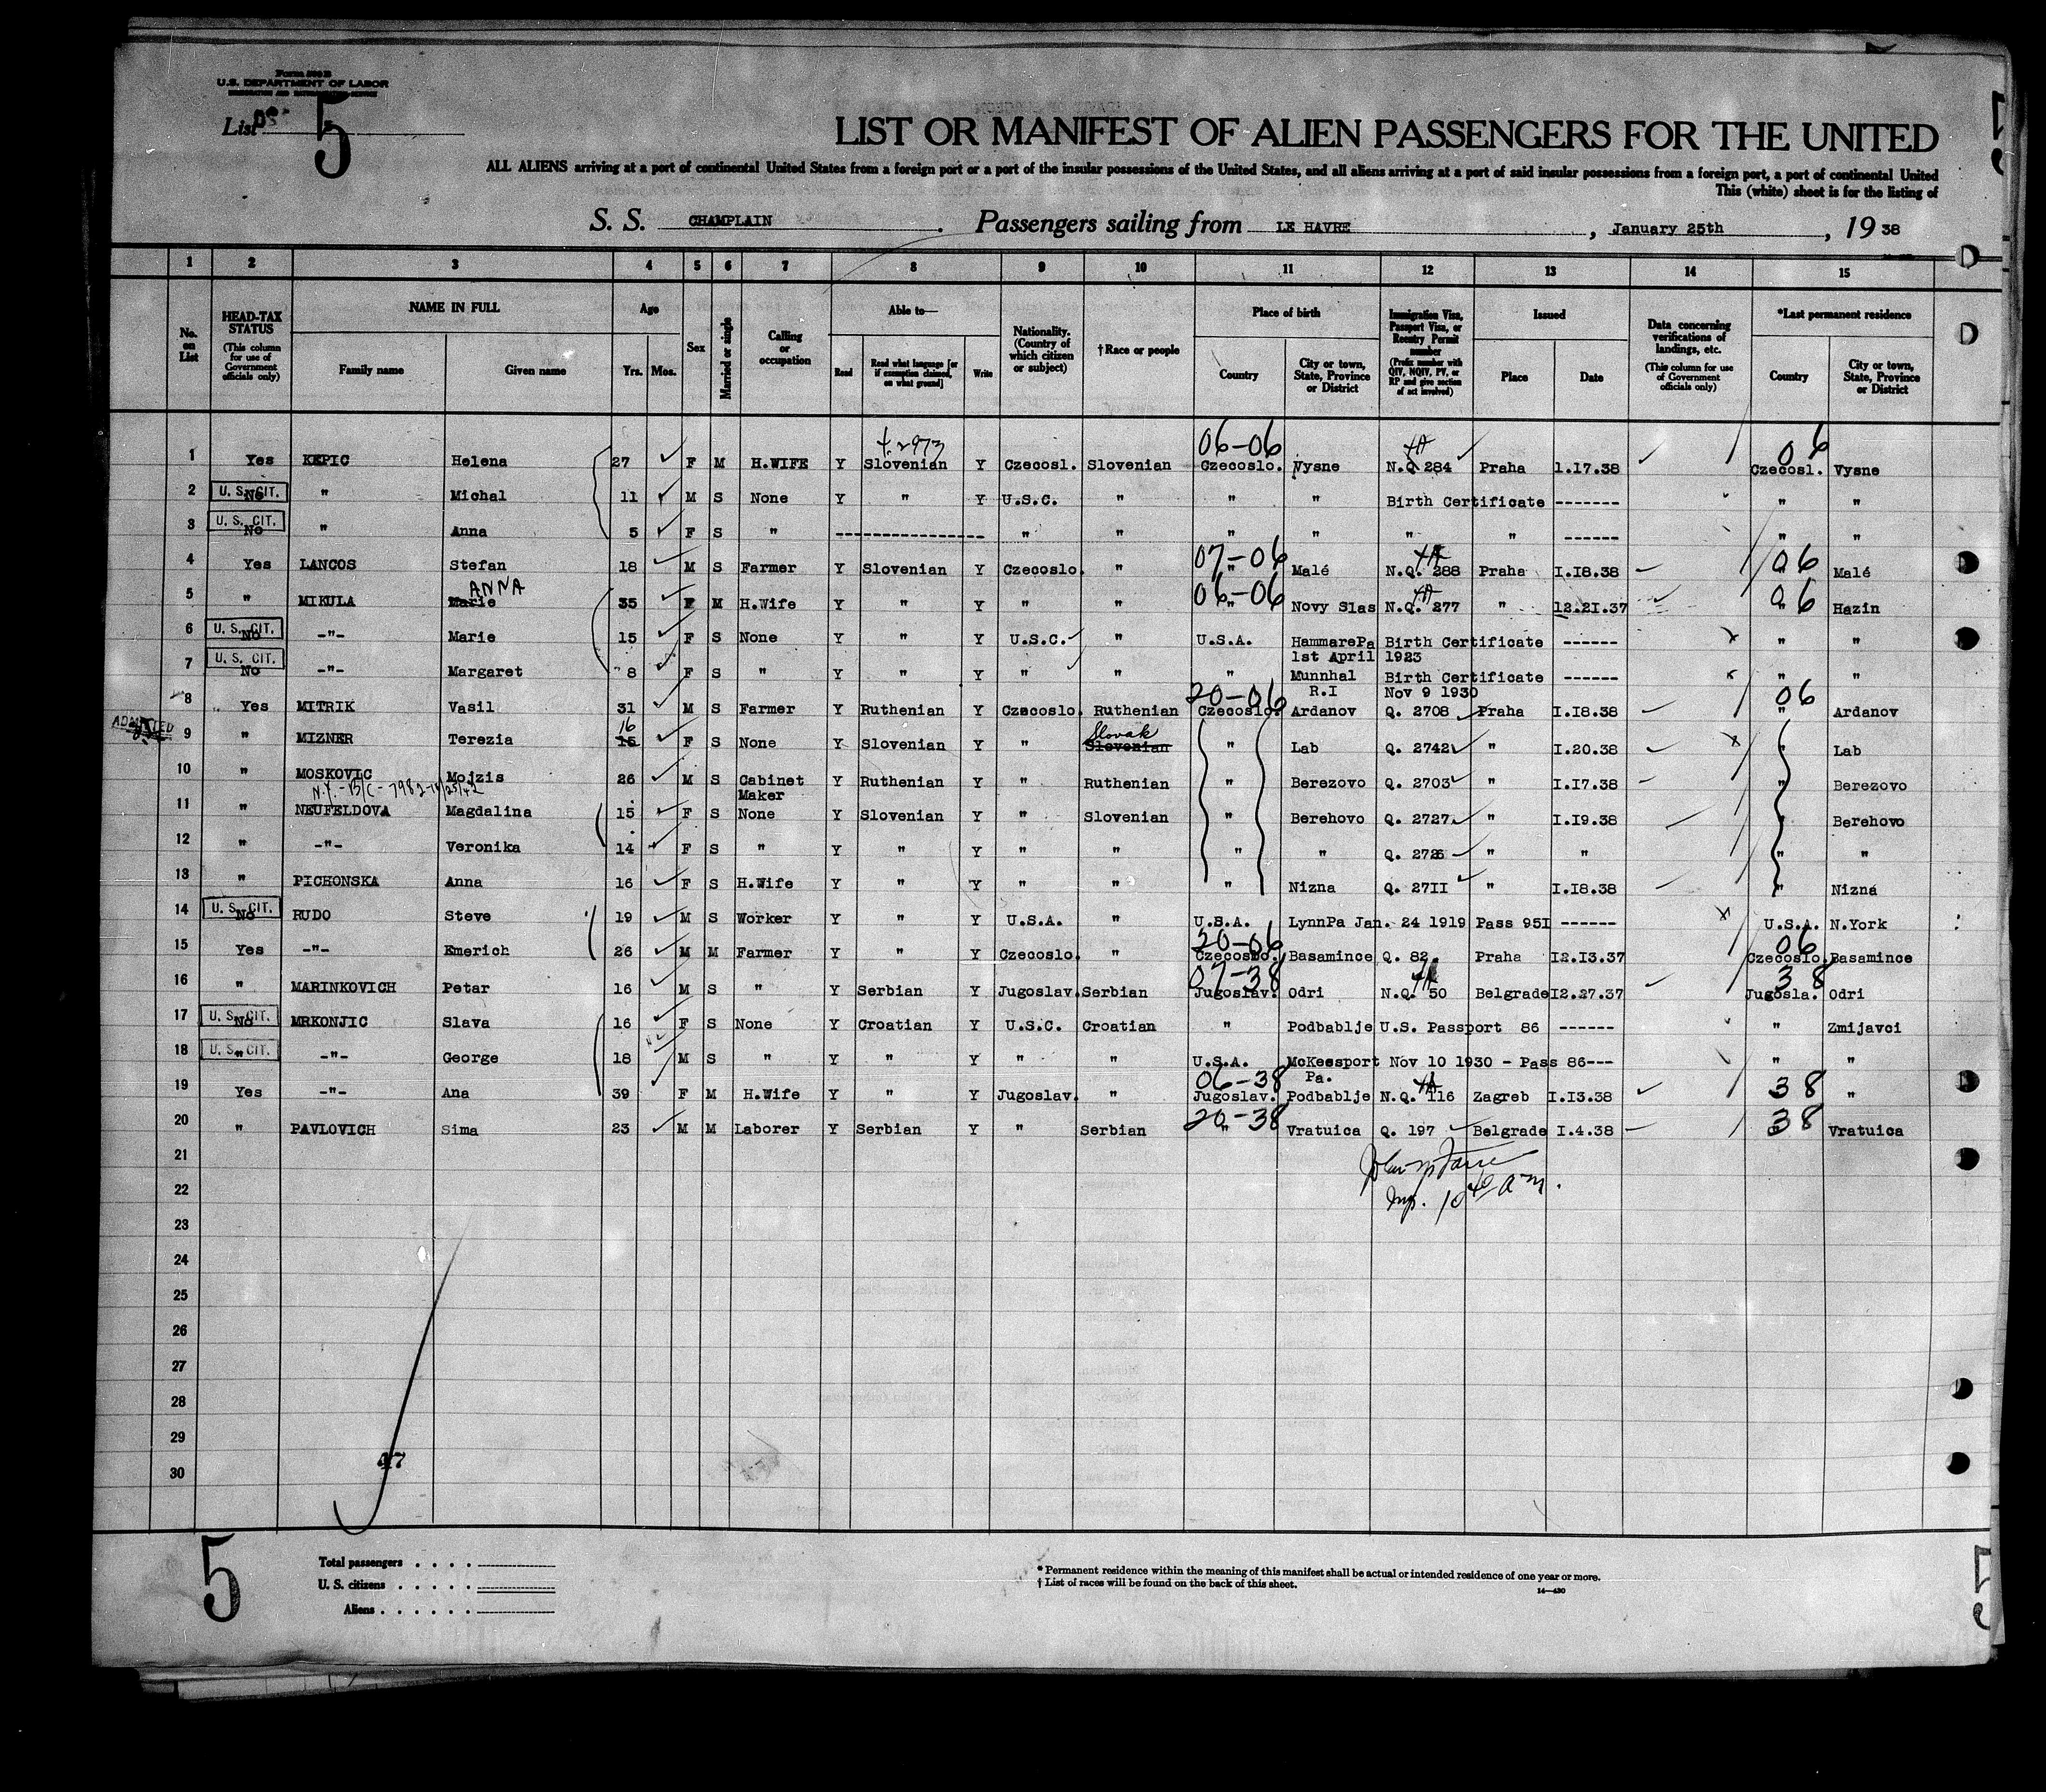 Form 500 B
U.S. DEPARTMENT OF LABOR
IMMIGRATION AND NATURALIZATION SERVICE
List 5
LIST OR MANIFEST OF ALIEN PASSENGERS FOR THE UNITED
ALL ALIENS arriving at a port of continental United States from a foreign port or a port of the insular possessions of the United States, and all aliens arriving at a port of said insular possessions from a foreign port, a port of continental United
This (white) sheet is for the listing of
S. S. CHAMPLAIN . Passengers sailing from LE HAVRE , January 25th , 19 38
1 2 3 4 5 6 7 8 9 10 11 12 13 14 15
No. on List
HEAD-TAX STATUS (This column for use of Government officials only)
NAME IN FULL Family name Given name
Age Yrs. Mos.
Sex
Married or single
Calling or occupation
Able to— Read Read what language [or if exemption claimed, on what ground] Write
Nationality. (Country of which citizen or subject)
†Race or people
Place of birth Country City or town, State, Province or District
Immigration Visa, Passport Visa, or Reentry Permit number (Prefix number with QIV, NQIV, PV, or RP and give section of act involved)
Issued Place Date
Data concerning verifications of landings, etc. (This column for use of Government officials only)
*Last permanent residence Country City or town, State, Province or District
2973 06-06 06
1 Yes KEPIC Helena 27 F M H.WIFE Y Slovenian Y Czecosl. Slovenian Czecoslo. Vysne N.Q 284 Praha 1.17.38 Czecosl. Vysne
2 U. S. CIT. No " Michal 11 M S None Y " Y U.S.C. " " " Birth Certificate ------- " "
3 U. S. CIT. No " Anna 5 F S " ---------------- " " " " " " ------ " "
07-06 06
4 Yes LANCOS Stefan 18 M S Farmer Y Slovenian Y Czecoslo. " " Malé N.Q. 288 Praha I.18.38 " Malé
ANNA 06-06 06
5 " MIKULA Marie 35 F M H.Wife Y " Y " " " Novy Slas N.Q. 277 " 12.21.37 " Hazin
6 U. S. CIT. No -"- Marie 15 F S None Y " Y U.S.C. " U.S.A. HammarePa Birth Certificate ------ " "
1st April 1923
7 U. S. CIT. No -"- Margaret 8 F S " Y " Y " " " Munnhal Birth Certificate ------ " "
20-06 R.I Nov 9 1930 06
8 Yes MITRIK Vasil 31 M S Farmer Y Ruthenian Y Czecoslo. Ruthenian Czecoslo. Ardanov Q. 2708 Praha I.18.38 " Ardanov
ADMITTED 16 Slovak
9 " MIZNER Terezia 15 F S None Y Slovenian Y " Slovenian " Lab Q. 2742 " I.20.38 " Lab
10 " MOSKOVIC Mojzis 26 M S Cabinet Maker Y Ruthenian Y " Ruthenian " Berezovo Q. 2703 " I.17.38 " Berezovo
11 " NEUFELDOVA Magdalina 15 F S None Y Slovenian Y " Slovenian " Berehovo Q. 2727 " I.19.38 " Berehovo
12 " -"- Veronika 14 F S " Y " Y " " " " Q. 2726 " " " "
13 " PICHONSKA Anna 16 F S H.Wife Y " Y " " " Nizna Q. 27II " I.18.38 " Nizná
14 U. S. CIT. No RUDO Steve 19 M S Worker Y " Y U.S.A. " U.S.A. LynnPa Jan. 24 1919 Pass 95I ------ U.S.A. N.York
20-06 06
15 Yes -"- Emerich 26 M M Farmer Y " Y Czecoslo. " Czecoslo. Basamince Q. 82. Praha I2.I3.37 Czecoslo. Basamince
07-38 38
16 " MARINKOVICH Petar 16 M S " Y Serbian Y Jugoslav. Serbian Jugoslav. Odri N.Q. 50 Belgrade I2.27.37 Jugosla. Odri
17 U. S. CIT. No MRKONJIC Slava 16 F S None Y Croatian Y U.S.C. Croatian " Podbablje U.S. Passport 86 ------ " Zmijavci
18 U. S. CIT. " -"- George 18 M S " Y " Y " " U.S.A. McKeesport Nov 10 1930 - Pass 86--- " "
06-38 Pa. 38
19 Yes -"- Ana 39 F M H.Wife Y " Y Jugoslav. " Jugoslav. Podbablje N.Q. 116 Zagreb I.I3.38 "
20-38 38
20 " PAVLOVICH Sima 23 M M Laborer Y Serbian Y " Serbian " Vratuica Q. 197 Belgrade I.4.38 Vratuica
21
22 Insp. 10 40 a m.
23
24
25
26
27
28
29
47
30
5
Total passengers . . . .
U. S. citizens . . . . .
Aliens . . . . . .
* Permanent residence within the meaning of this manifest shall be actual or intended residence of one year or more.
† List of races will be found on the back of this sheet.
14—430